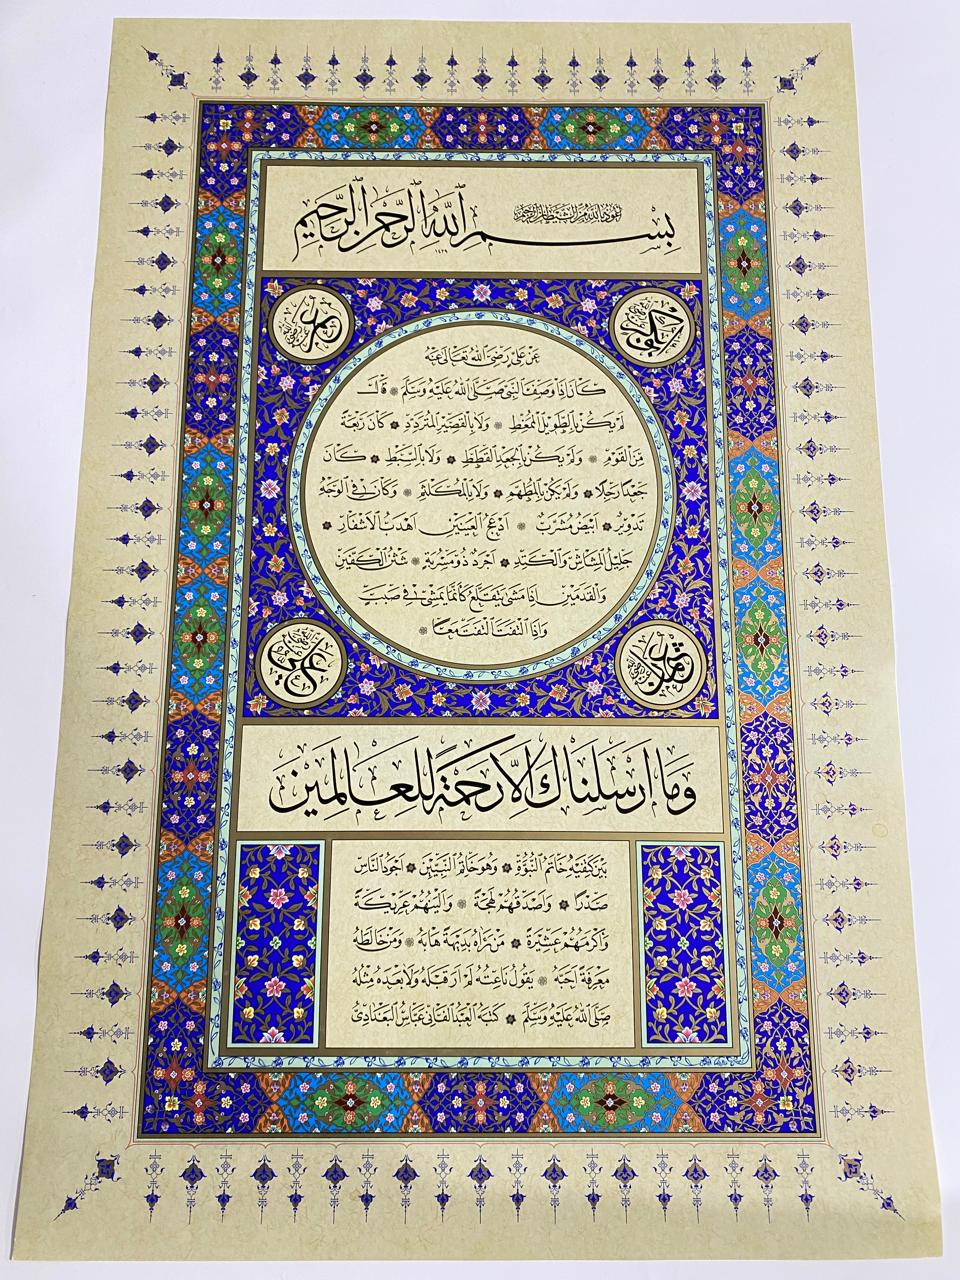 أعوذ بالله من الشيطان الرجيم
بسم الله الرحمن الرحيم
١٤٢٩
عن علي رضي الله تعالى عنه
كان إذا وصف النبي صلى الله عليه وسلم قال
لم يكن بالطويل الممغط ولا بالقصير المتردد كان ربعة
من القوم ولم يكن بالجعد القطط ولا بالسبط كان
جعدا رجلا ولم يكن بالمطهم ولا بالمكلثم وكان في الوجه
تدوير أبيض مشرب أدعج العينين أهدب الأشفار
جليل المشاش والكتد أجرد ذو مسربة شثن الكفين
والقدمين إذا مشى يتقلع كأنما يمشي في صبب
وإذا التفت التفت معا
وما أرسلناك إلا رحمة للعالمين
بين كتفيه خاتم النبوة وهو خاتم النبيين أجود الناس
صدرا وأصدقهم لهجة وألينهم عريكة
وأكرمهم عشيرة من رآه بديهة هابه ومن خالطه
معرفة أحبه يقول ناعته لم أر قبله ولا بعده مثله
صلى الله عليه وسلم كتبه العبد الفاني عباس البغدادي